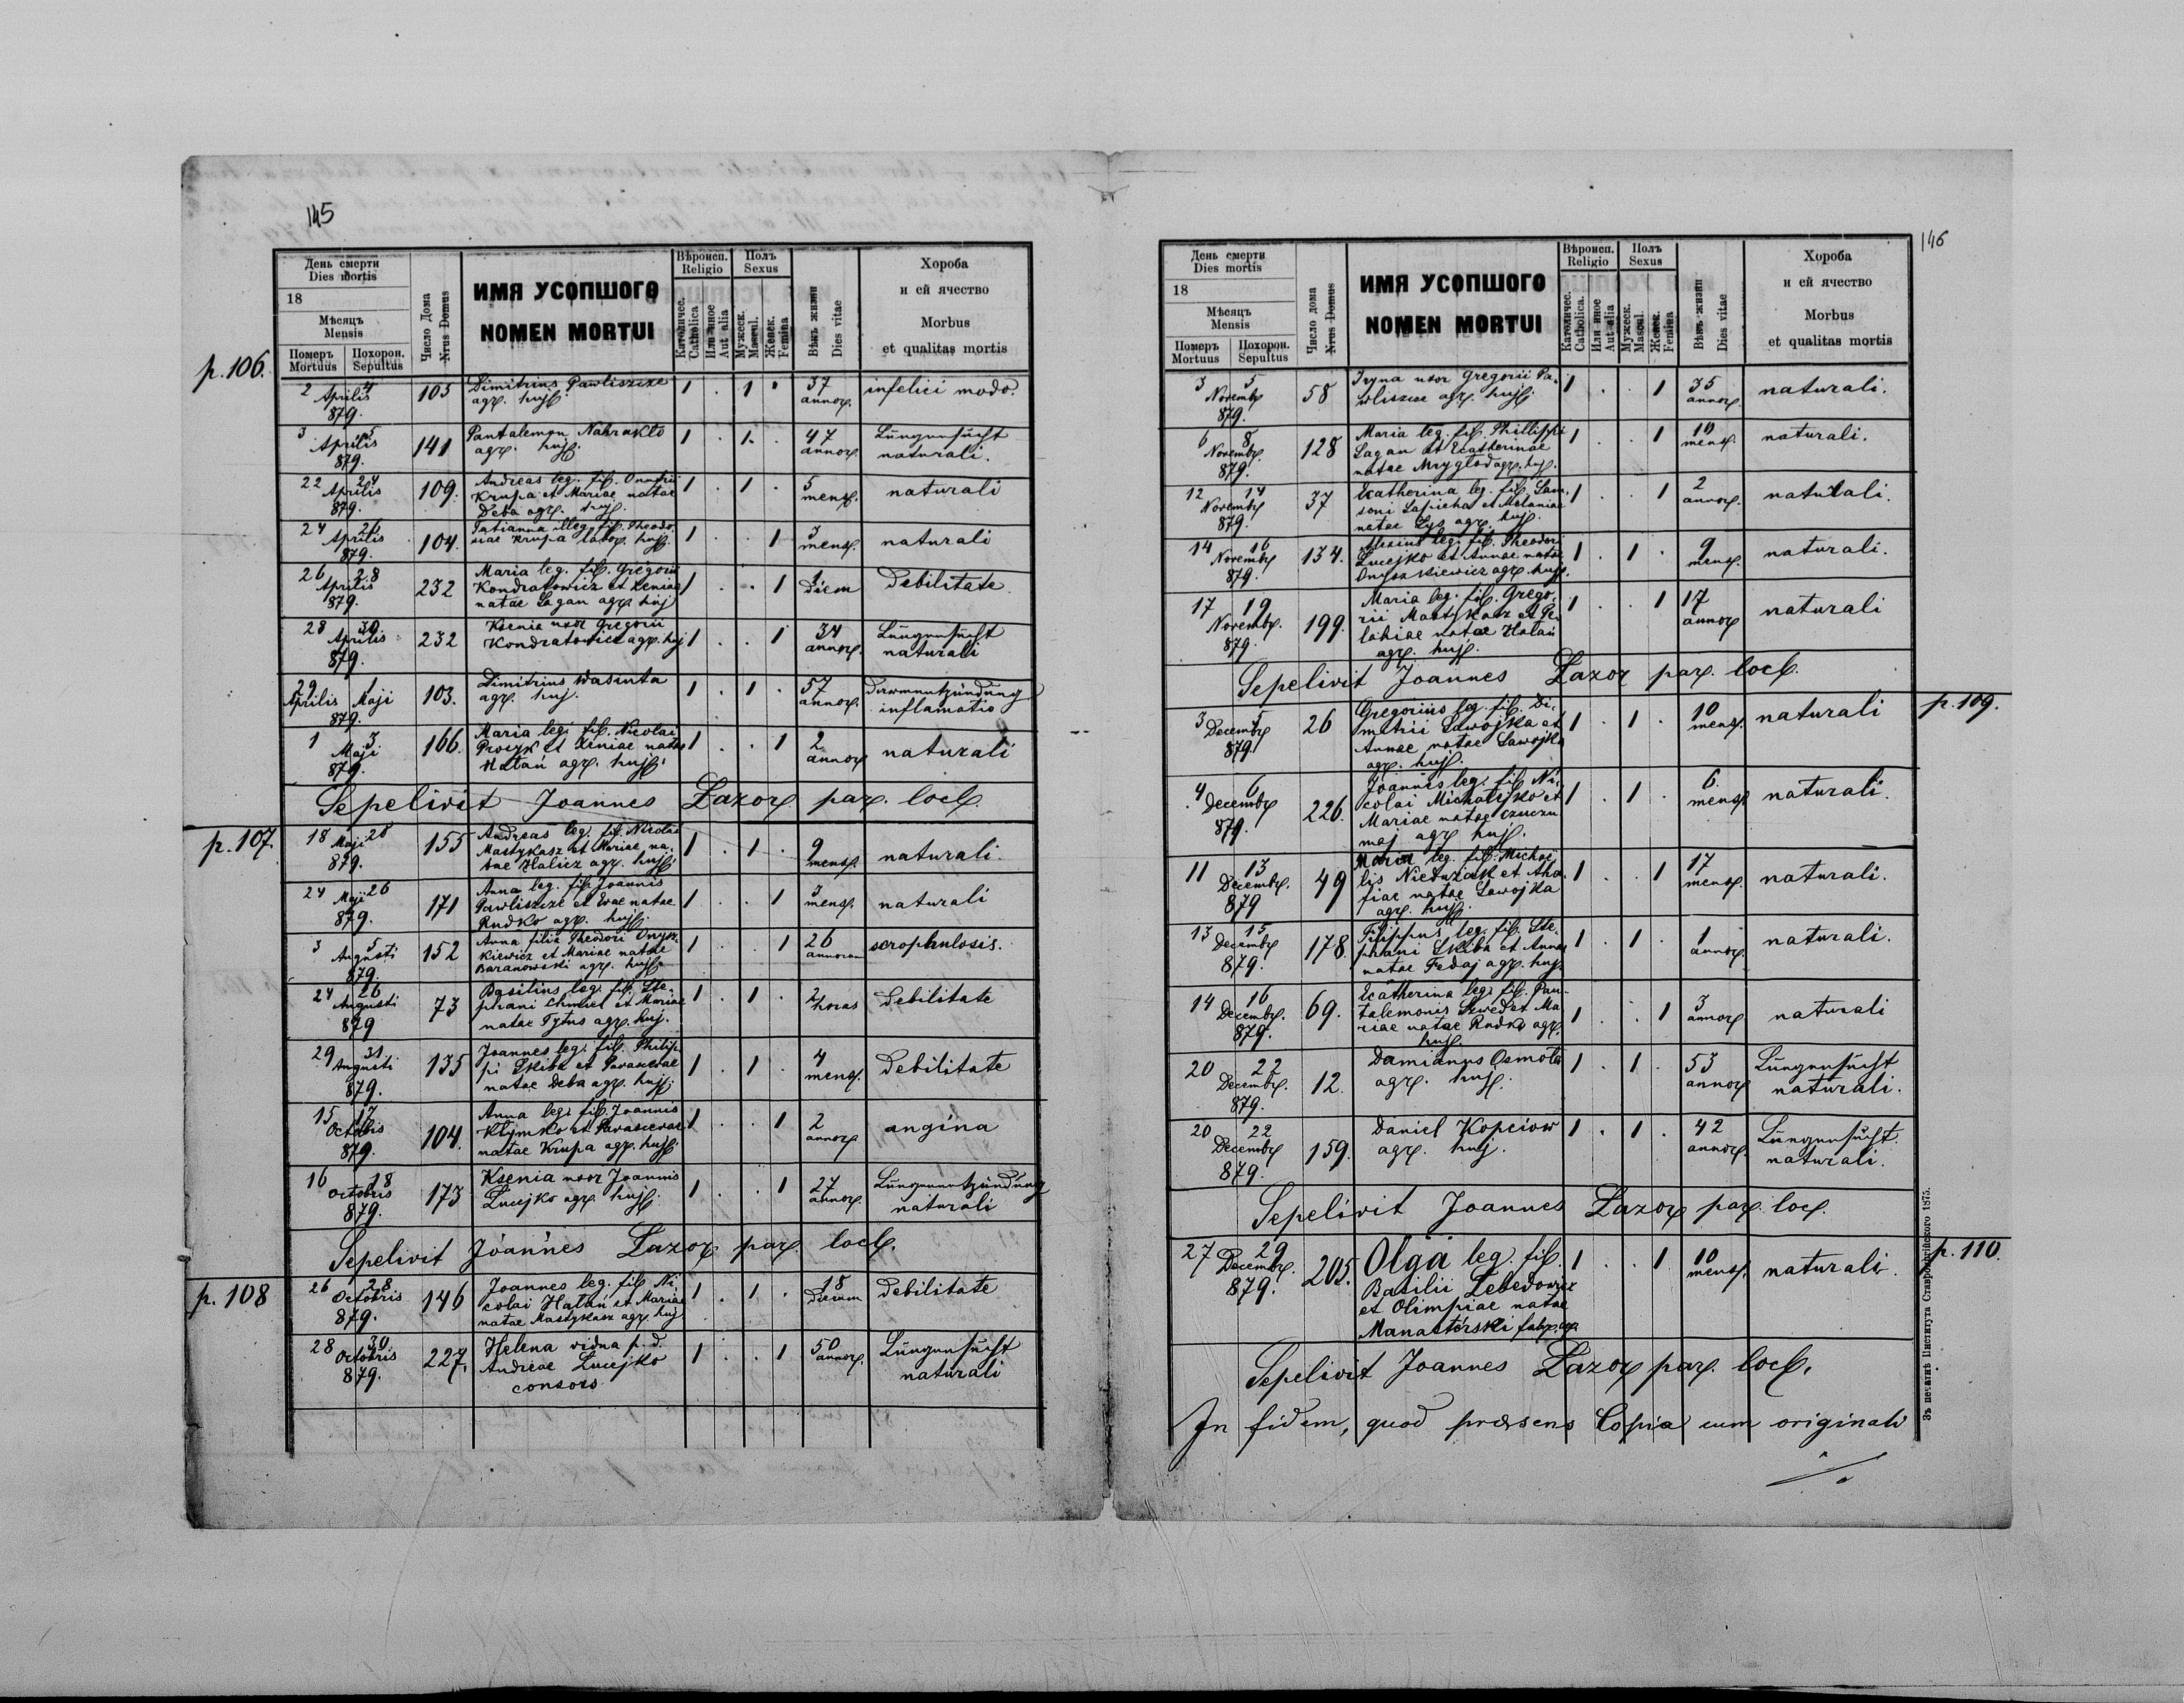 145
День смерти
Dies mortis
18
Мѣсяцъ
Mensis
Померъ
Mortuus
Похорон.
Sepultus
Число Дома
Nrus Domus
ИМЯ УСОПШОГО
NOMEN MORTUI
Вѣроисп.
Religio
Католичес.
Catholica
Или иное
Aut alia
Полъ
Sexus
Мужеск.
Mascul.
Женск.
Femina
Вѣкъ жизни
Dies vitae
Хороба
и ей ячество
Morbus
et qualitas mortis
p. 106.
2 4 Aprilis 879. 105 Dimitrius Pawliszcze 1 . 1 . 37 annor. infelici modo.
agr. huj.
3 5 Aprilis 879. 141 Pantalemon Nahrakto 1 . 1 . 47 annor. Lungensucht
agr. huj. naturali.
22 24 Aprilis 879. 109. Andreas leg. fil. Onufrii 1 . 1 . 5 mens. naturali
Krupa et Mariae natae
Deba agr. huj.
24 26 Aprilis 879. 104. Tatianna illeg. fil. Theodo- 1 . . 1 3 mens. naturali
siae Krupa labor. huj.
26 28 Aprilis 879. 232 Maria leg. fil. Gregorii 1 . . 1 1 diem Debilitate.
Kondratowicz et Xeniae
natae Lagan agr. huj
28 30 Aprilis 879. 232 Ksenia uxor Gregorii 1 . . 1 34 annor. Lungensucht
Kondratowicz agr. huj naturali
29 Aprilis 1 Maji 879. 103. Dimitrius Wasiuta 1 . 1 . 57 annor. Darmentzündung
agr. huj. inflamatio
1 3 Maji 879. 166. Maria leg. fil. Nicolai 1 . . 1 2 annor. naturali
Procyk et Xeniae natae
Hatań agr. huj.
Sepelivit Joannes Lazor par. loc.
p. 107.
18 20 Maji 879. 155 Andreas leg. fil. Nicolai 1 . 1 . 9 mens. naturali.
Mastykasz et Mariae na-
tae Halicz agr. huj.
24 26 Maji 879. 171 Anna leg. fil. Joannis 1 . . 1 3 mens. naturali
Pawliszcze et Evae natae
Rudko agr. huj.
3 5 Augusti 879. 152 Anna filia Theodori Onysz- 1 . . 1 26 annorum scrophulosis.
kiewicz et Mariae natae
Baranowski agr. huj.
24 26 Augusti 879 73 Basilius leg. fil. Ste- 1 . 1 . 2 horas Debilitate
phani Chmiel et Mariae
natae Tytus agr. huj.
29 31 Augusti 879. 135 Joannes leg. fil. Philip- 1 . 1 . 4 mens. Debilitate
pi Skiba et Parascevae
natae Deba agr. huj.
15 17 Octobris 879. 104. Anna leg. fil. Joannis 1 . . 1 2 annor. angina
Klymko et Parascevae
natae Krupa agr. huj.
16 18 Octobris 879. 173 Ksenia uxor Joannis 1 . . 1 27 annor. Lungenentzündung
Lucejko agr. huj. naturali
Sepelivit Joannes Lazor par. loc.
p. 108
26 28 Octobris 879. 146 Joannes leg. fil. Ni- 1 . 1 . 18 dierum Debilitate
colai Hatań et Mariae
natae Mastykasz agr. huj
28 30 Octobris 879. 227. Helena vidua p. d. 1 . . 1 50 annor. Lungensucht
Andreae Lucejko naturali
consors
146
День смерти
Dies mortis
18
Мѣсяцъ
Mensis
Померъ
Mortuus
Похорон.
Sepultus
Число дома
Nrus Domus
ИМЯ УСОПШОГО
NOMEN MORTUI
Вѣроисп.
Religio
Католичес.
Catholica.
Или иное
Aut alia
Полъ
Sexus
Мужеск.
Mascul.
Женск.
Femina
Вѣкъ жизни
Dies vitae
Хороба
и ей ячество
Morbus
et qualitas mortis
3 5 Novembr 879. 58 Iryna uxor Gregorii Pa- 1 . . 1 35 annor. naturali.
wliszcze agr. huj.
6 8 Novembr. 879. 128 Maria leg. fil. Phillippi 1 . . 1 10 mens. naturali.
Lagan et Ecatherinae
natae Mrygłod agr. huj.
12 14 Novembr 879. 37 Ecatherina leg. fil. Sam- 1 . . 1 2 annor. naturali.
soni Sapieha et Melaniae
natae Lys agr. huj.
14 16 Novembr 879. 134. Alexius leg. fil. Theodori 1 . 1 . 9 mens. naturali.
Lucejko et Annae natae
Onyszkiewicz agr. huj.
17 19 Novembr. 879. 199. Maria leg. fil. Grego- 1 . . 1 17 annor naturali
rii Mastykasz et Pe-
lahiae natae Hatań
agr. huj.
Sepelivit Joannes Lazor par. loc.
p. 109.
3 5 Decembr 879. 26 Gregorius leg. fil. Di- 1 . 1 . 10 mens. naturali
mitrii Ławojka et
Annae natae Ławojka
agr. huj.
4 6 Decembr 879. 226. Joannes leg. fil. Ni- 1 . 1 . 6 mens. naturali.
colai Michatijko et
Mariae natae Czuczu
maj agr. huj.
11 13 Decembr. 879 49 Maria leg. fil. Michae- 1 . . 1 17 mens. naturali.
lis Nietuzak et Aha-
fiae natae Ławojka
agr. huj.
13 15 Decembr 879. 178. Filippus leg. fil. Ste- 1 . 1 . 1 annor. naturali.
phani Skiba et Annae
natae Fedaj agr. huj.
14 16 Decembr. 879. 69. Ecatherina leg. fil. Pan- 1 . . 1 3 annor naturali
talemonis Szwed et Ma-
riae natae Rudko agr.
huj.
20 22 Decembr. 879. 12. Damianus Osmoła 1 . 1 . 53 annor Lungensucht
agr. huj. naturali.
20 22 Decembr 879. 159. Daniel Kopciow 1 . 1 . 42 annor. Lungensucht
agr. huj. naturali.
Sepelivit Joannes Lazor par. loc.
p. 110.
27 29 Decembr. 879. 205. Olga leg. fil. 1 . . 1 10 mens. naturali.
Basilii Lebedowicz
et Olimpiae natae
Manasterski
Sepelivit Joannes Lazor par. loc.
In fidem, quod praesens Copia cum originali
Зъ печатнѣ Института Ставропигійского 1875.